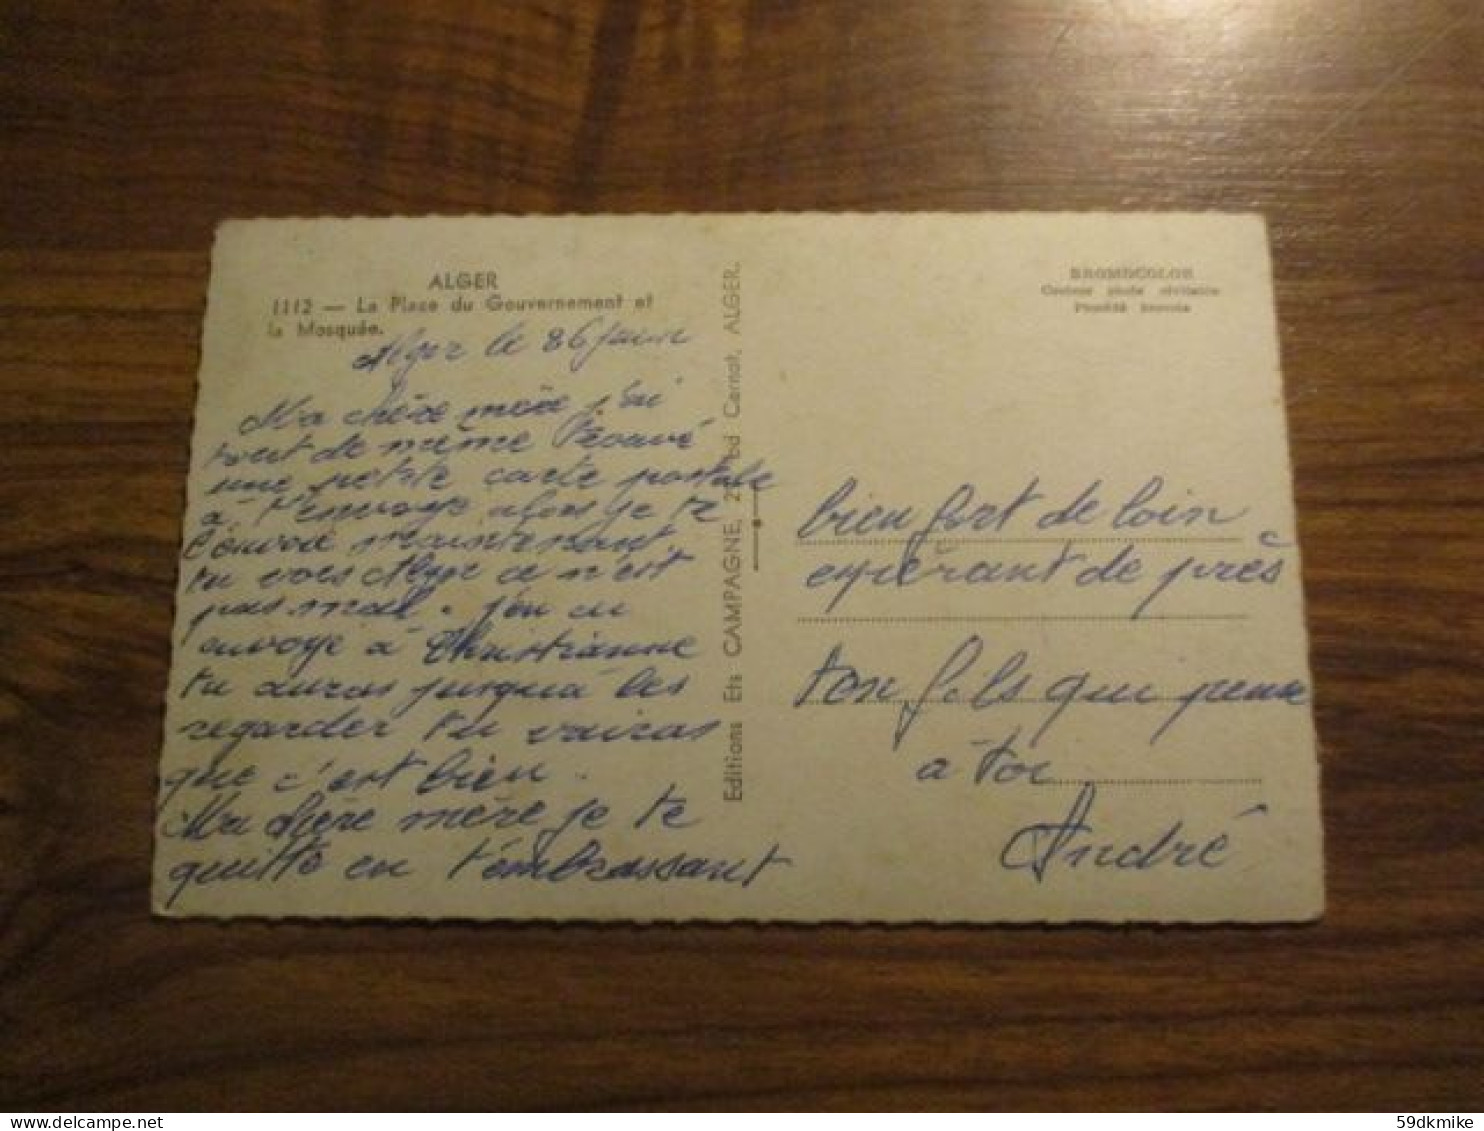 ALGER
1112 — La Place du Gouvernement et
la Mosquée.
Alger le 26
Ma chère mère j'ai
tout de même trouvé
une petite carte postale
à t'envoye alors je te
l'envoie maintenant
tu vois Alger ce n'est
pas mal. j'en ai
envoye à Christianne
tu auras jusqu'à les
regarder tu vairas
que c'est bien.
Ma chère mère je te
quitte en t'embrassant
Editions Ets CAMPAGNE, Bd Carnot, ALGER.
BROMOCOLOR
bien fort de loin
espèrant de près
ton fils qui pense
à toi
André
59dkmike